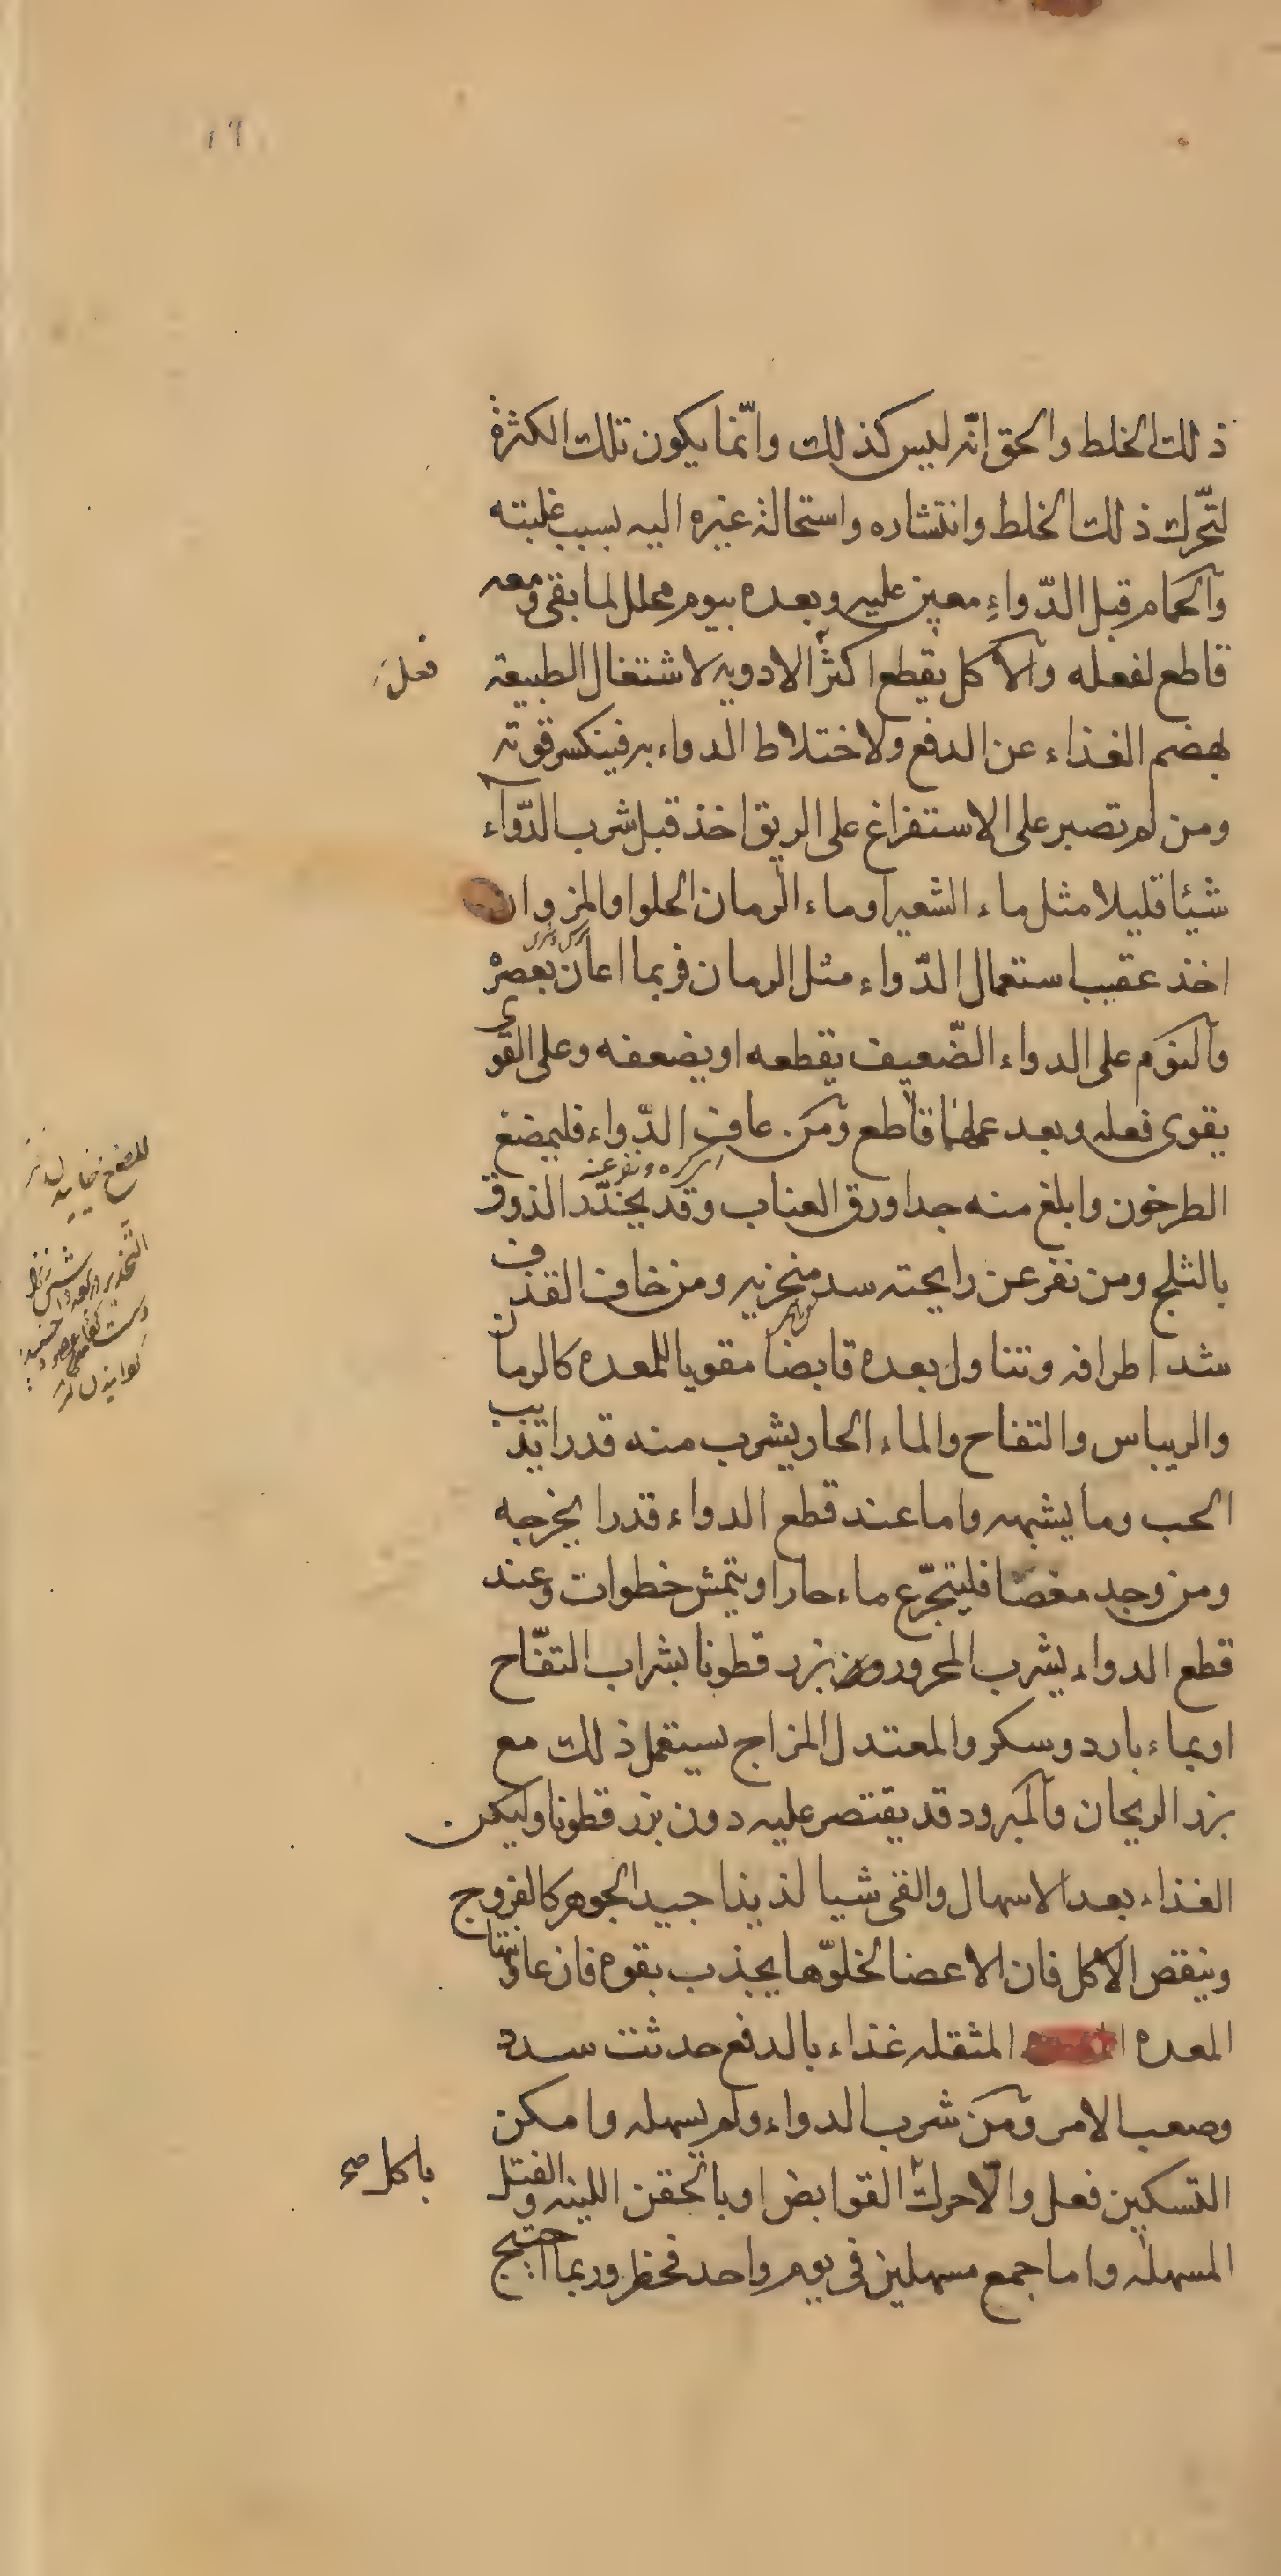 ١٦
ذلك الخلط والحق انّه ليس كذلك وانّما يكون تلك الكثرة
لتحّرك ذلك الخلط وانتشاره واستحالة غيره اليه بسبب غلبته
والحمام قبل الدّواءِ معين عليه وبعده بيوم محلل لما بقى ومعه
قاطع لفعله والاكل يقطع اكثر الادويه لاشتغال الطبيعه
فعلَ
بهضم الغذاء عن الدفع ولاختلاط الدواء به فينكسر قوته
ومن لم تصبر على الاستفراغ على الريق اخذ قبل شرب الدّوآء
شيئا قليلا مثل ماء الشعير اوماء الرمان الحلو او المز وان
اخذ عقيب استعمال الدّواء مثل الرمان فربما اعان بعصره
والنوم على الدواء الضّعيف يقطعه اويضعفه وعلى القوى
يقوى فعله وبعد عملهما قاطع ومن عاف الدّواء فليمضغ
اى كره ونفر عنه
الطرخون وابلغ منه جدا ورق العناب وقد يخدّر الذوق
بالثلج ومن نفر عن رايحته سد منخريه ومن خاف القذف
شد اطرافه وتناول بعده قابضا مقويا للمعده كالرمان
والريباس والتفاح والماء الحار يشرب منه قدرا يذيب
الحب وما يشبهه واما عند قطع الدواء قدرا يخرجه
ومن وجد مغصًا فليتجرّع ماء حارا ويتمش خطوات وعند
قطع الدواء يشرب المحرورون بزر قطونا بشراب التفّاح
اوبماء بارد وسكر والمعتدل المزاج يستعمل ذلك مع
بزر الريحان والمبرود قد يقتصر عليه دون بزر قطونا وليكن
الغذاء بعد الاسهال والقى شيا لذيذا جيد الجوهر كالفروج
وينقص الاكل فان الاعضا لخلوّها يجذب بقوه فان عاونتها
المعده المثقله غذاء بالدفع حدثت سدد
وصعب الامر ومن شرب الدواء ولم يسهله وامكن
التسكين فعل والّا حرك القوابض او بالحقن اللينه والفتل
باكل صح
المسهله واما جمع مسهلين فى يوم واحد فخطر وربما احتيج